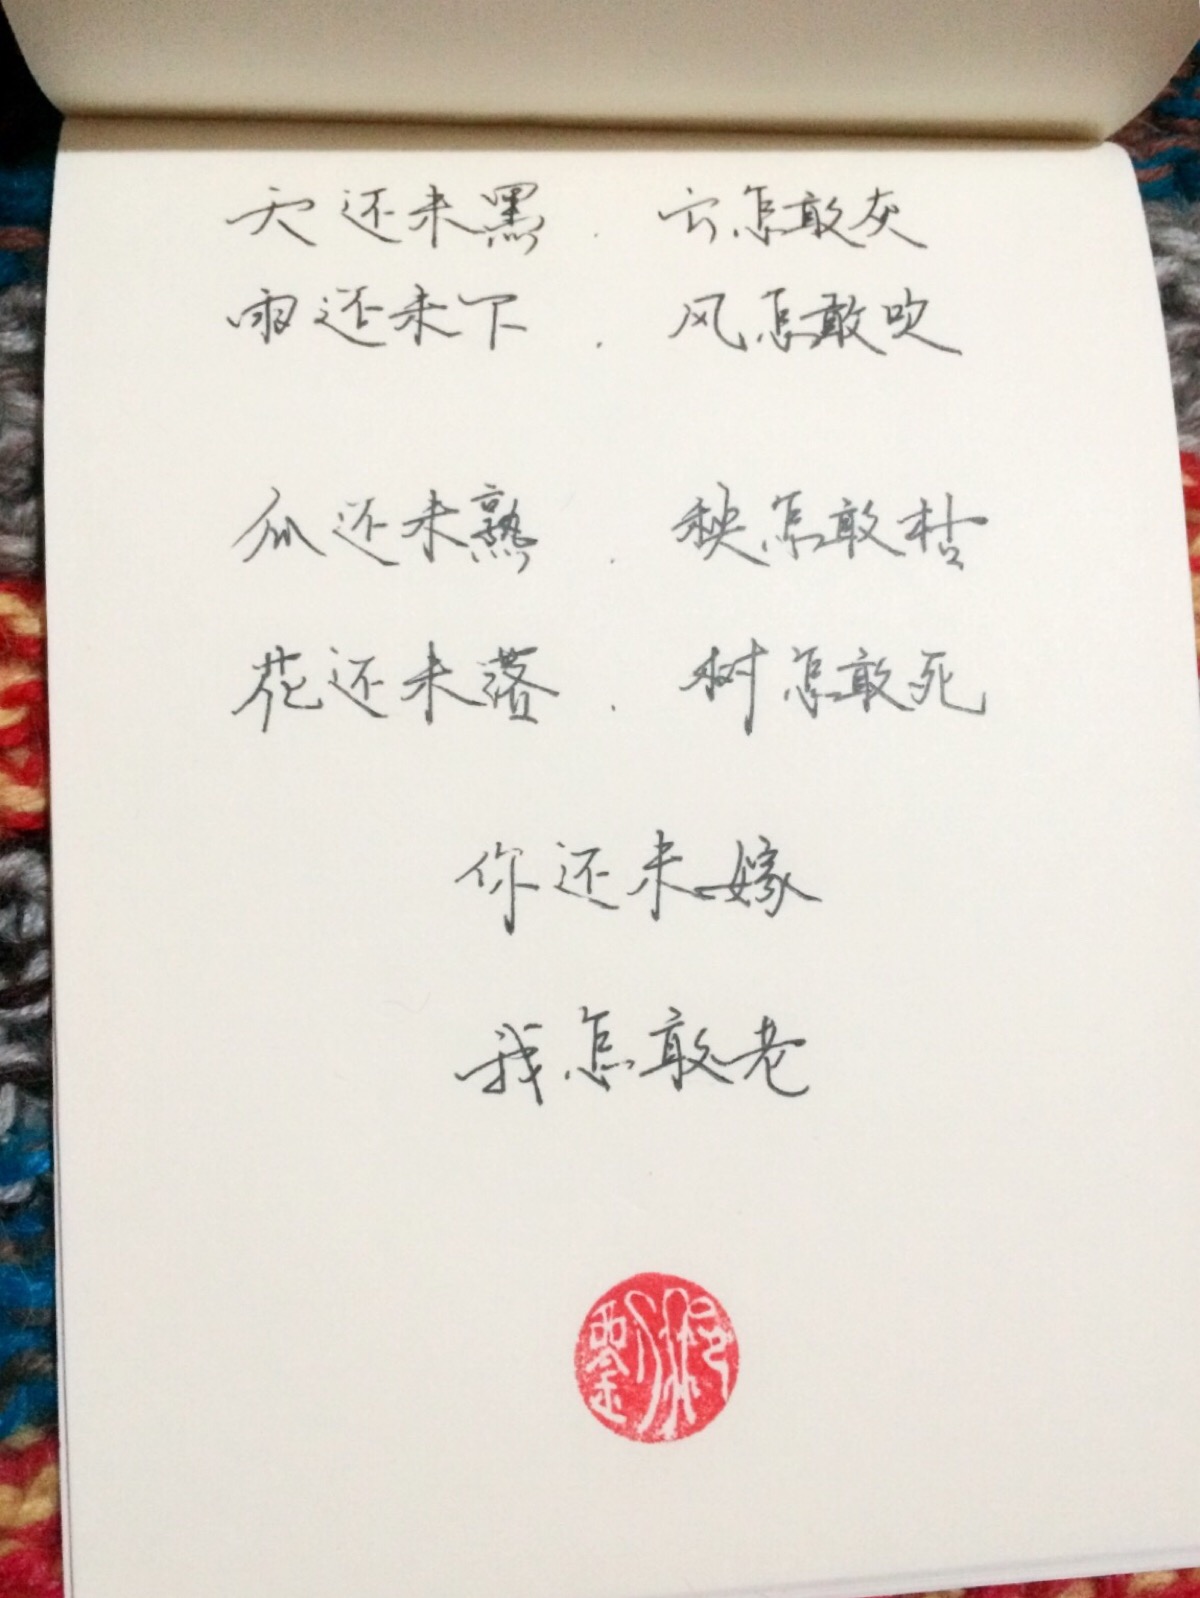 天还未黑．云怎敢灰
雨还未下．风怎敢吹
瓜还未熟．秧怎敢枯
花还未落．树怎敢死
你还未嫁
我怎敢老